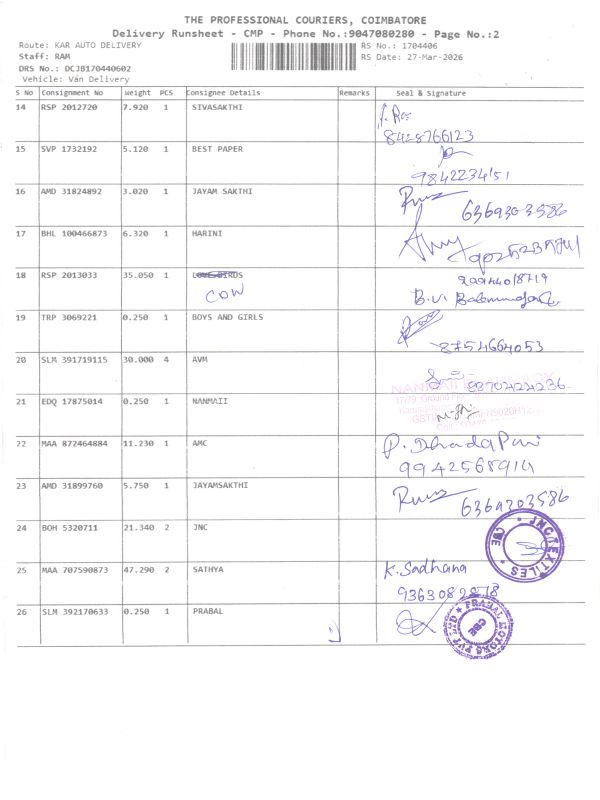 THE PROFESSIONAL COURIERS, COIMBATORE
Delivery Runsheet - CMP - Phone No.:9047080280 - Page No.:2
Route: KAR AUTO DELIVERY
RS No.: 1704406
Staff: RAM
RS Date: 27-Mar-2026
DRS No.: DCJB170440602
Vehicle: Van Delivery
S No Consignment No Weight PCS Consignee Details Remarks Seal & Signature
14 RSP 2012720 7.920 1 SIVASAKTHI
8428766123
15 SVP 1732192 5.120 1 BEST PAPER
9842234151
16 AMD 31824892 3.020 1 JAYAM SAKTHI
6369303586
17 BHL 100466873 6.320 1 HARINI
18 RSP 2013033 35.050 1 LOVE BIRDS
COW
19 TRP 3069221 0.250 1 BOYS AND GIRLS
8754664053
20 SLM 391719115 30.000 4 AVM
21 EDQ 17875014 0.250 1 NANMAII
22 MAA 872464884 11.230 1 AMC
9942568914
23 AMD 31899760 5.750 1 JAYAMSAKTHI
24 BOH 5320711 21.340 2 JNC
JNC TEXTILES
CBE
25 MAA 707590873 47.290 2 SATHYA
K. Sadhana
26 SLM 392170633 0.250 1 PRABAL
PRABAL MOTORS PVT LTD
CBE